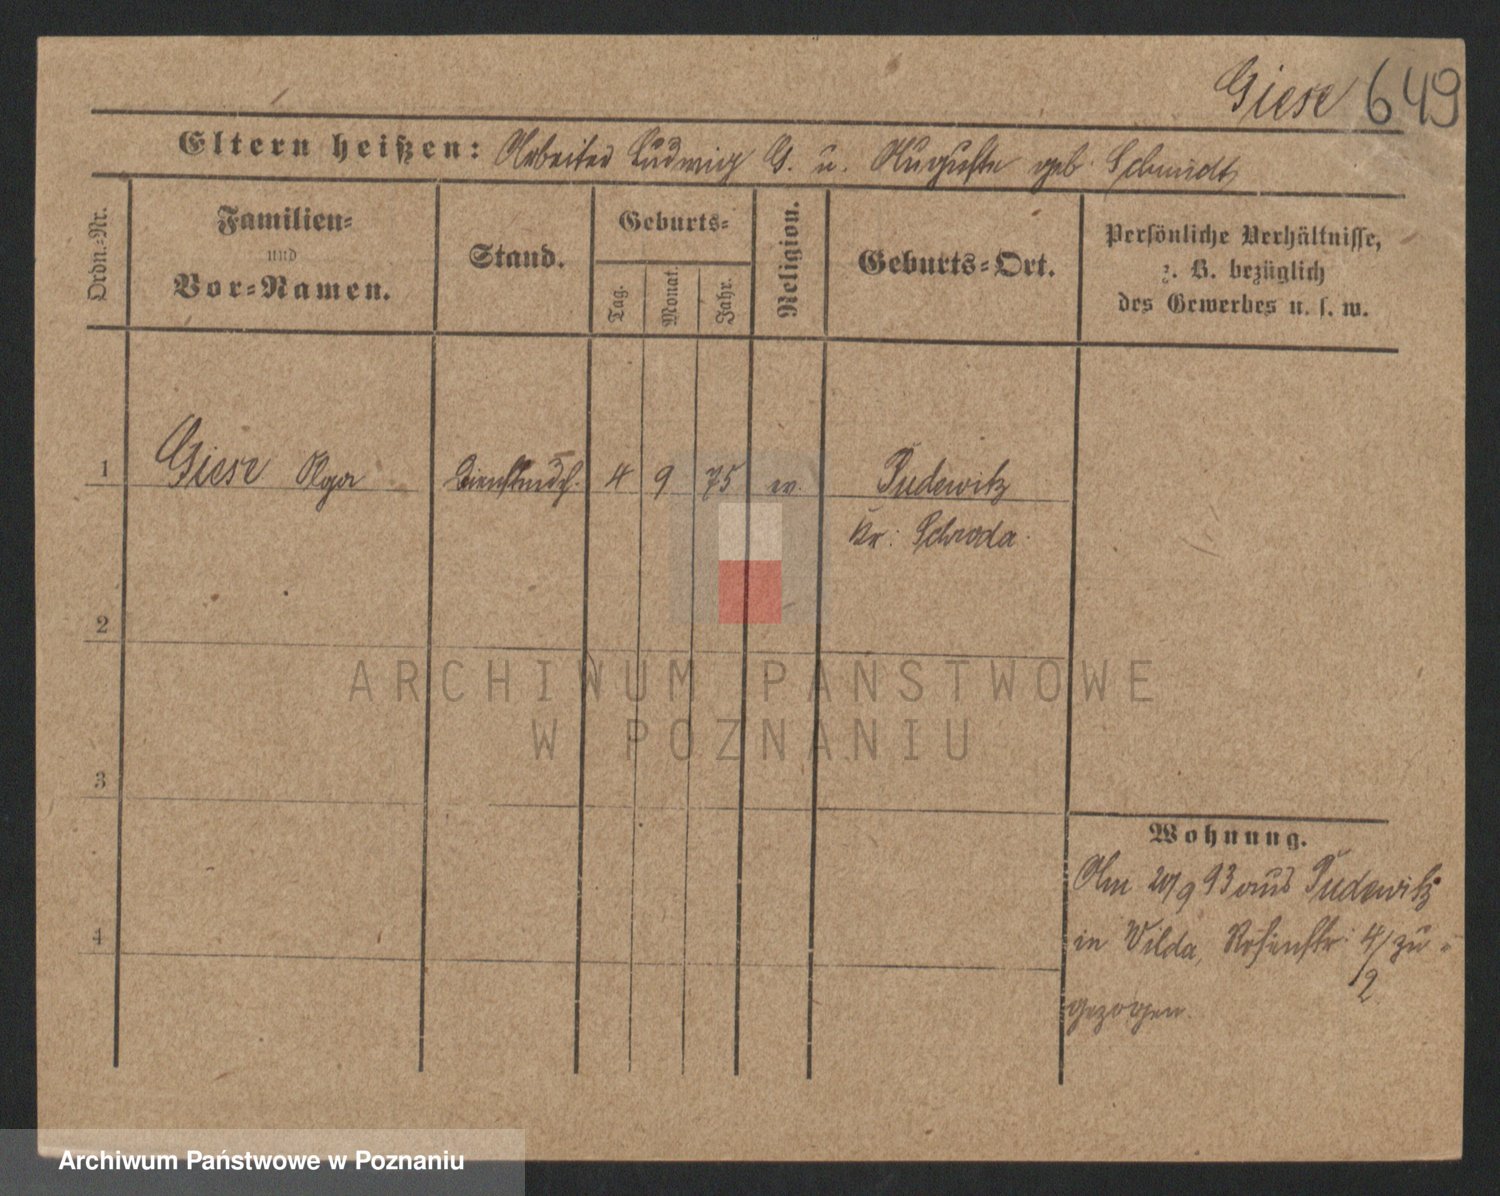 Giese 649
Eltern heißen: Arbeiter Ludwig G. u. Auguste geb. Schmidt
Ordn.=Nr.
Familien=
und
Vor=Namen.
Stand.
Geburts=
Tag.
Monat.
Jahr.
Religion.
Geburts=Ort.
Persönliche Verhältnisse,
z. B. bezüglich
des Gewerbes u. s. w.
1 Giese Olga Dienstmdch. 4 9 75 ev. Pudewitz
Kr. Schroda.
2
3
4
Wohnung.
Am 20/9 93 aus Pudewitz
in Wilda, Rosenstr. 4/2 zu=
gezogen.
ARCHIWUM PAŃSTWOWE
W POZNANIU
Archiwum Państwowe w Poznaniu